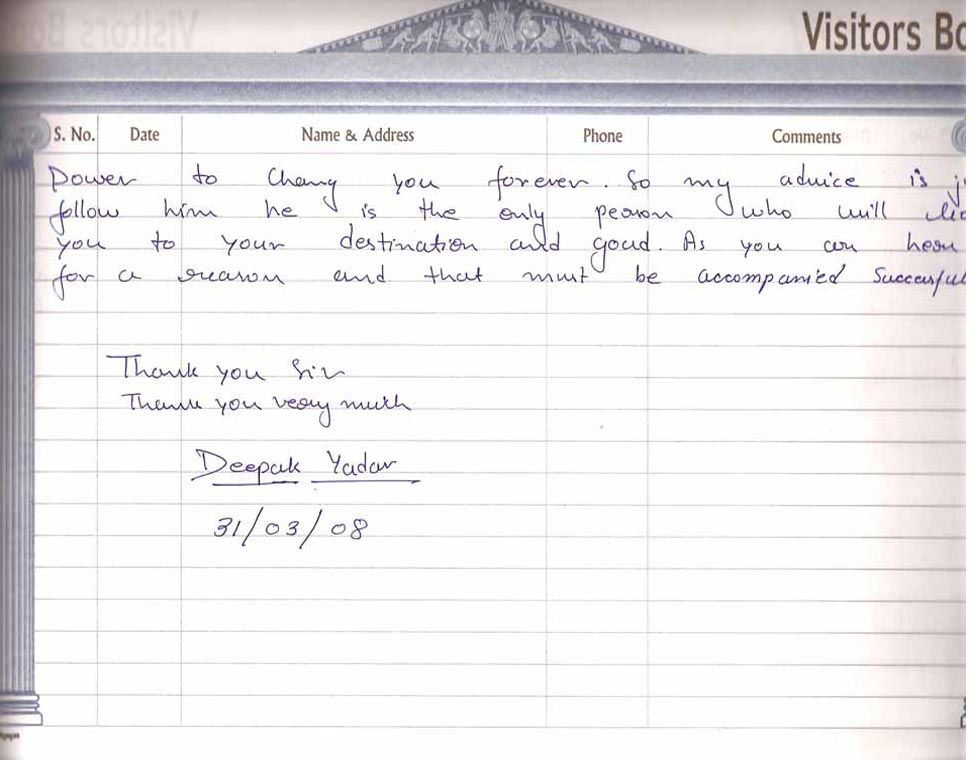 Visitors Bo
S. No. Date Name & Address Phone Comments
Power to Chang you forever. So my advice is j
follow him he is the only person who will
you to your destination and goad. As you can hear
for a reason and that must be accompanied Successful
Thank you Sir
Thank you very much
Deepak Yadav
31/03/08